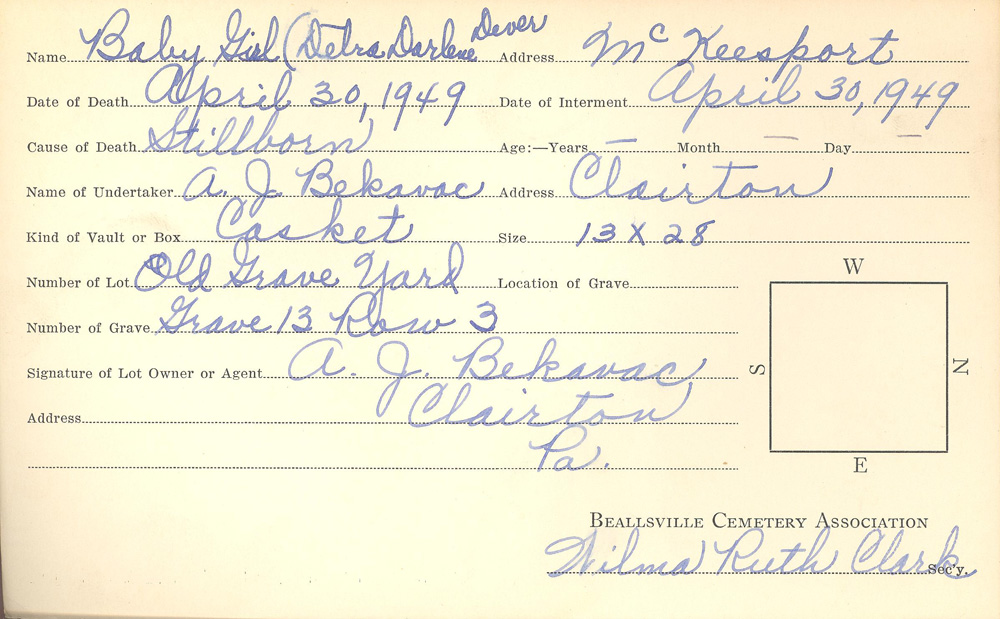 Name Baby Girl (Debra Darlene Dever Address McKeesport
Date of Death April 30, 1949 Date of Interment April 30, 1949
Cause of Death Stillborn Age:—Years — Month — Day —
Name of Undertaker A. J. Bekavac Address Clairton
Kind of Vault or Box Casket Size 13 X 28
Number of Lot Old Grave Yard Location of Grave
W
Number of Grave Grave 13 Row 3
Signature of Lot Owner or Agent A. J. Bekavac
S N
Address Clairton
Pa.
E
BEALLSVILLE CEMETERY ASSOCIATION
Wilma Ruth Clark Sec'y.